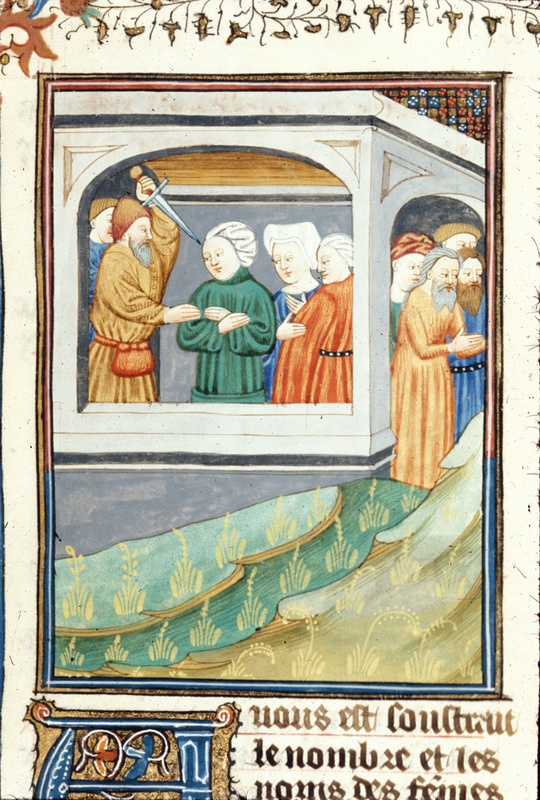 A nous est soustrait
le nombre et les
noms des fẽmes